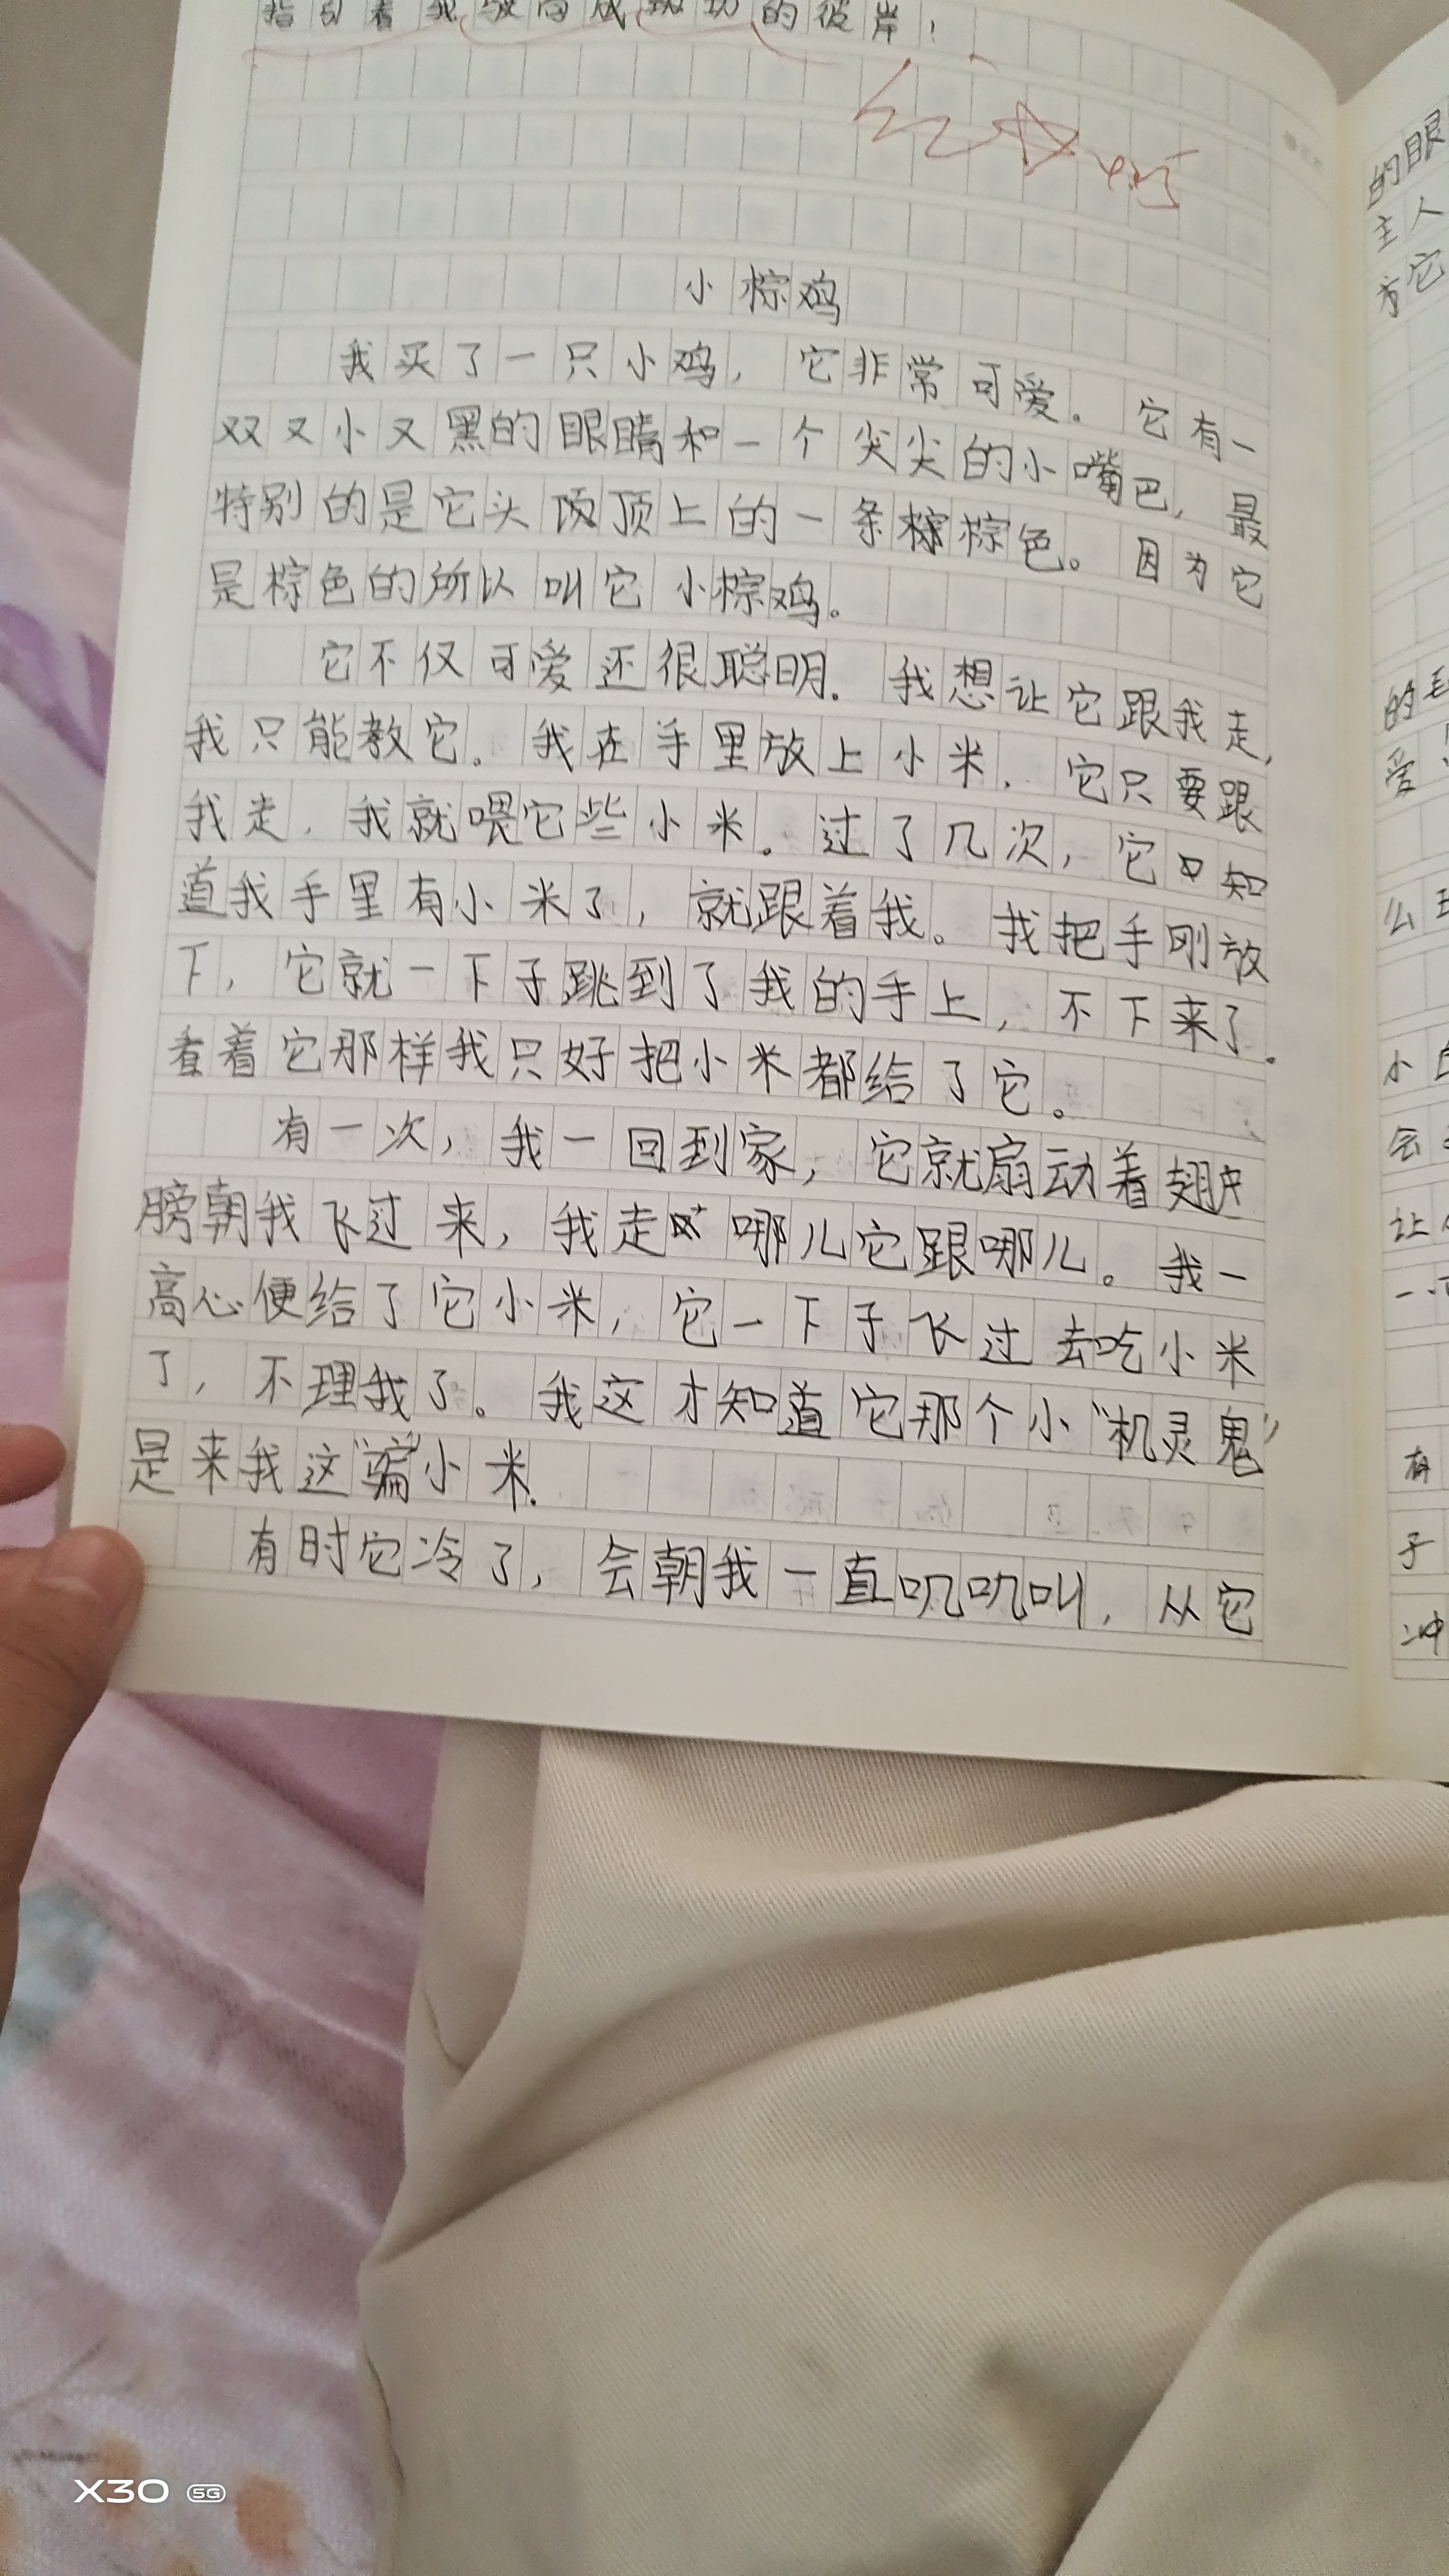 指引着我驶向成功的彼岸！
小棕鸡
我买了一只小鸡，它非常可爱。它有一
双又小又黑的眼睛和一个尖尖的小嘴巴，最
特别的是它头顶上的一条棕棕色。因为它
是棕色的所以叫它小棕鸡。
它不仅可爱还很聪明。我想让它跟我走，
我只能教它。我在手里放上小米，它只要跟
我走，我就喂它些小米。过了几次，它知
道我手里有小米了，就跟着我。我把手刚放
下，它就一下子跳到了我的手上，不下来了。
看着它那样我只好把小米都给了它。
有一次，我一回到家，它就扇动着翅
膀朝我飞过来，我走哪儿它跟哪儿。我一
高心便给了它小米，它一下子飞过去吃小米
了，不理我了。我这才知道它那个小“机灵鬼”
是来我这“骗”小米。
有时它冷了，会朝我一直叽叽叫，从它
的眼
主人
方它
的毛
爱！
么
小白
会
让
一
有
子
冲
X30 5G